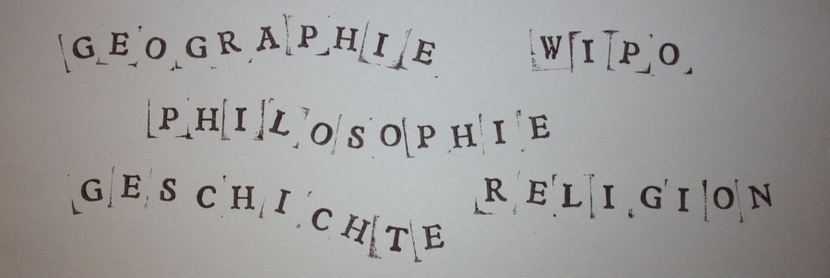 GEOGRAPHIE WIPO
PHILOSOPHIE
GESCHICHTE RELIGION